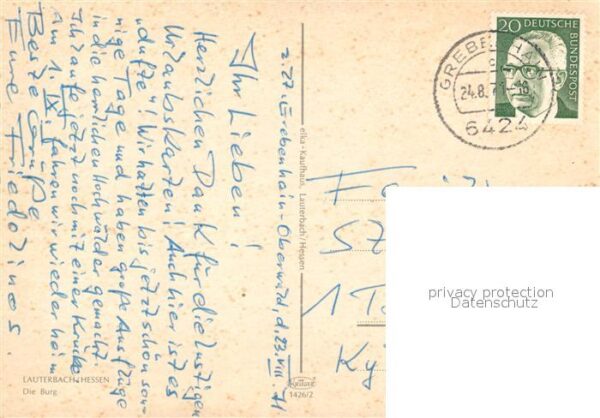 z. Zt. Grebenhain-Oberwald, d. 23. VIII. 71
Ihr Lieben!
Herzlichen Dank für die lustigen
Urlaubskarten! Auch hier ist es
"dufte"! Wir hatten bis jetzt schön son-
nige Tage und haben große Ausflüge
in die herrlichen Hochwälder gemacht.
Ich laufe jetzt noch mit einer Krücke
Am 1. IX. fahren wir wieder heim
Beste Grüße
Eure Friedolinos.
LAUTERBACH/HESSEN
Die Burg
efka-Kaufhaus, Lauterbach/Hessen
1426/2
20 DEUTSCHE BUNDESPOST
24.8.71
6424
57
1
privacy protection
Datenschutz